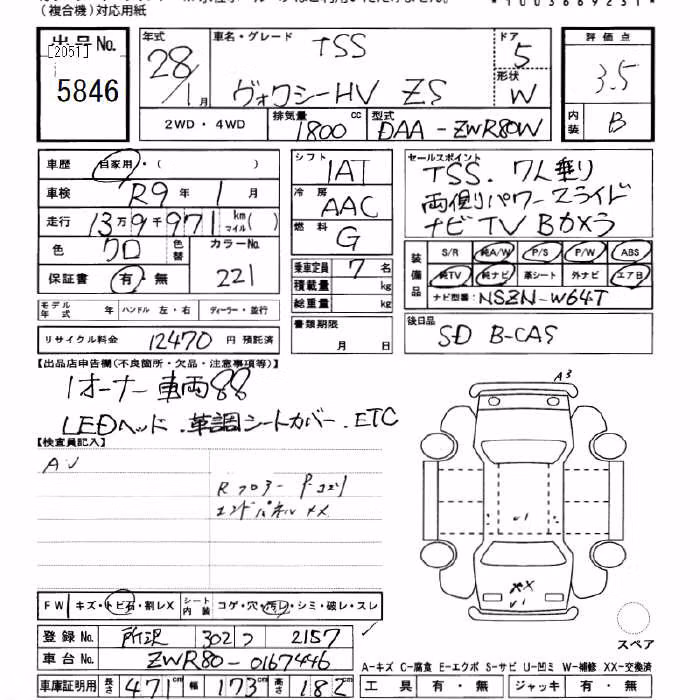 (複合機)対応用紙
*1003669231*
出品 No. [2051] 5846
年式 28/1月
車名・グレード TSS ヴォクシーHV ZS
ドア 5
形状 W
評価点 3.5
内装 B
2WD・4WD
排気量 1800 cc
型式 DAA-ZWR80W
車歴 自家用・( )
車検 R9年1月
走行 13万9千971 km マイル( )
色 クロ 色替 カラーNo. 221
保証書 有・無
モデル年式 年 ハンドル 左・右 ディーラー・並行
リサイクル料金 12470 円 預託済
シフト 1AT
冷房 AAC
燃料 G
乗車定員 7 名
積載量 kg
総重量 kg
書類期限 月 日
セールスポイント TSS. 7人乗り
両側パワースライド
ナビTV Bカメラ
装備品 S/R 純A/W P/S P/W ABS
純TV 純ナビ 革シート 外ナビ エアB
ナビ型番: NSZN-W64T
後日品
SD B-CAS
【出品店申告欄(不良箇所・欠品・注意事項等)】
1オーナー車両88
LEDヘッド.革調シートカバー.ETC
【検査員記入】
AU
R フロアー
エンドパネルXX
A3
U1
XX
U1
FW キズ・トビ石・割レX シート内装 コゲ・穴・汚レ・シミ・破レ・スレ
登録 No. 所沢 302 つ 2157
車台 No. ZWR80-0167446
車庫証明用 長さ 471cm 幅 173cm 高さ 182cm
スペア
A-キズ C-腐食 E-エクボ S-サビ U-凹ミ W-補修 XX-交換済
工具 有・無 ジャッキ 有・無